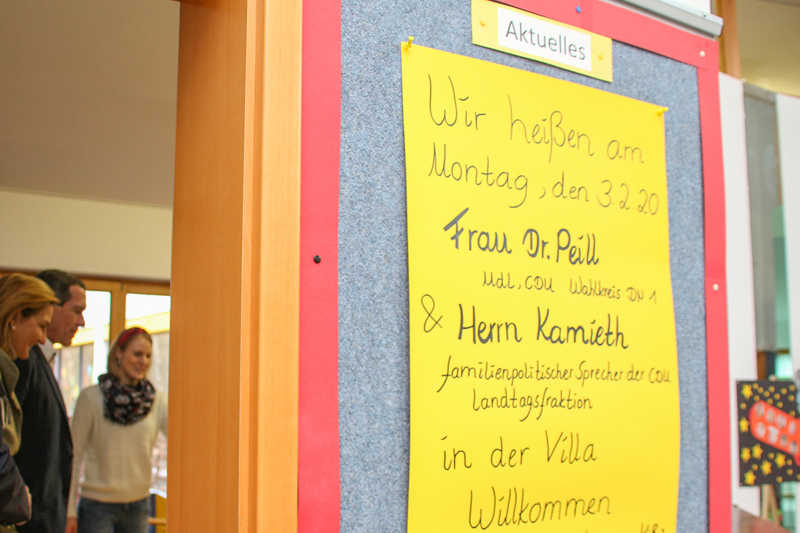 Aktuelles
Wir heißen am
Montag, den 3.2.20
Frau Dr. Peill
MdL, CDU Wahlkreis DN 1
& Herrn Kamieth
familienpolitischer Sprecher der CDU
Landtagsfraktion
in der Villa
Willkommen